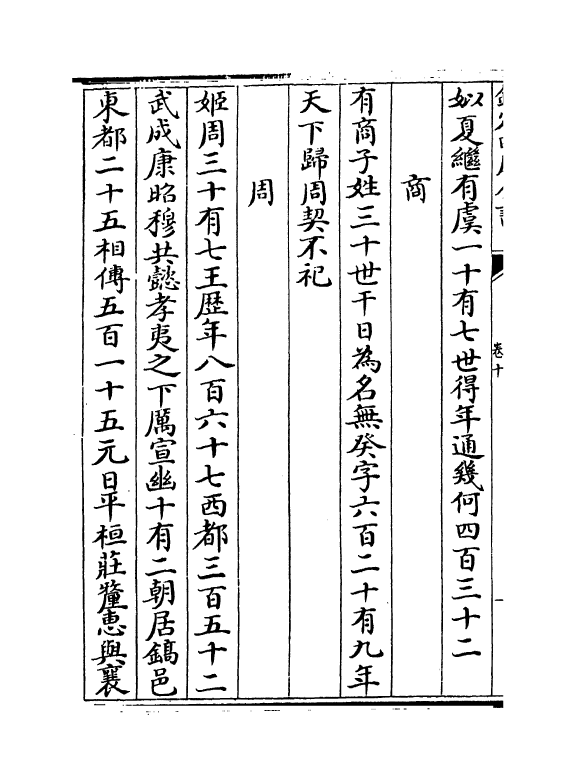 卷十
姒夏繼有虞一十有七世得年通幾何四百三十二
商
有商子姓三十世干日為名無癸字六百二十有九年
天下歸周契不祀
周
姬周三十有七王歷年八百六十七西都三百五十二
武成康昭穆共懿孝夷之下厲宣幽十有二朝居鎬邑
東都二十五相傳五百一十五元日平桓莊釐惠與襄